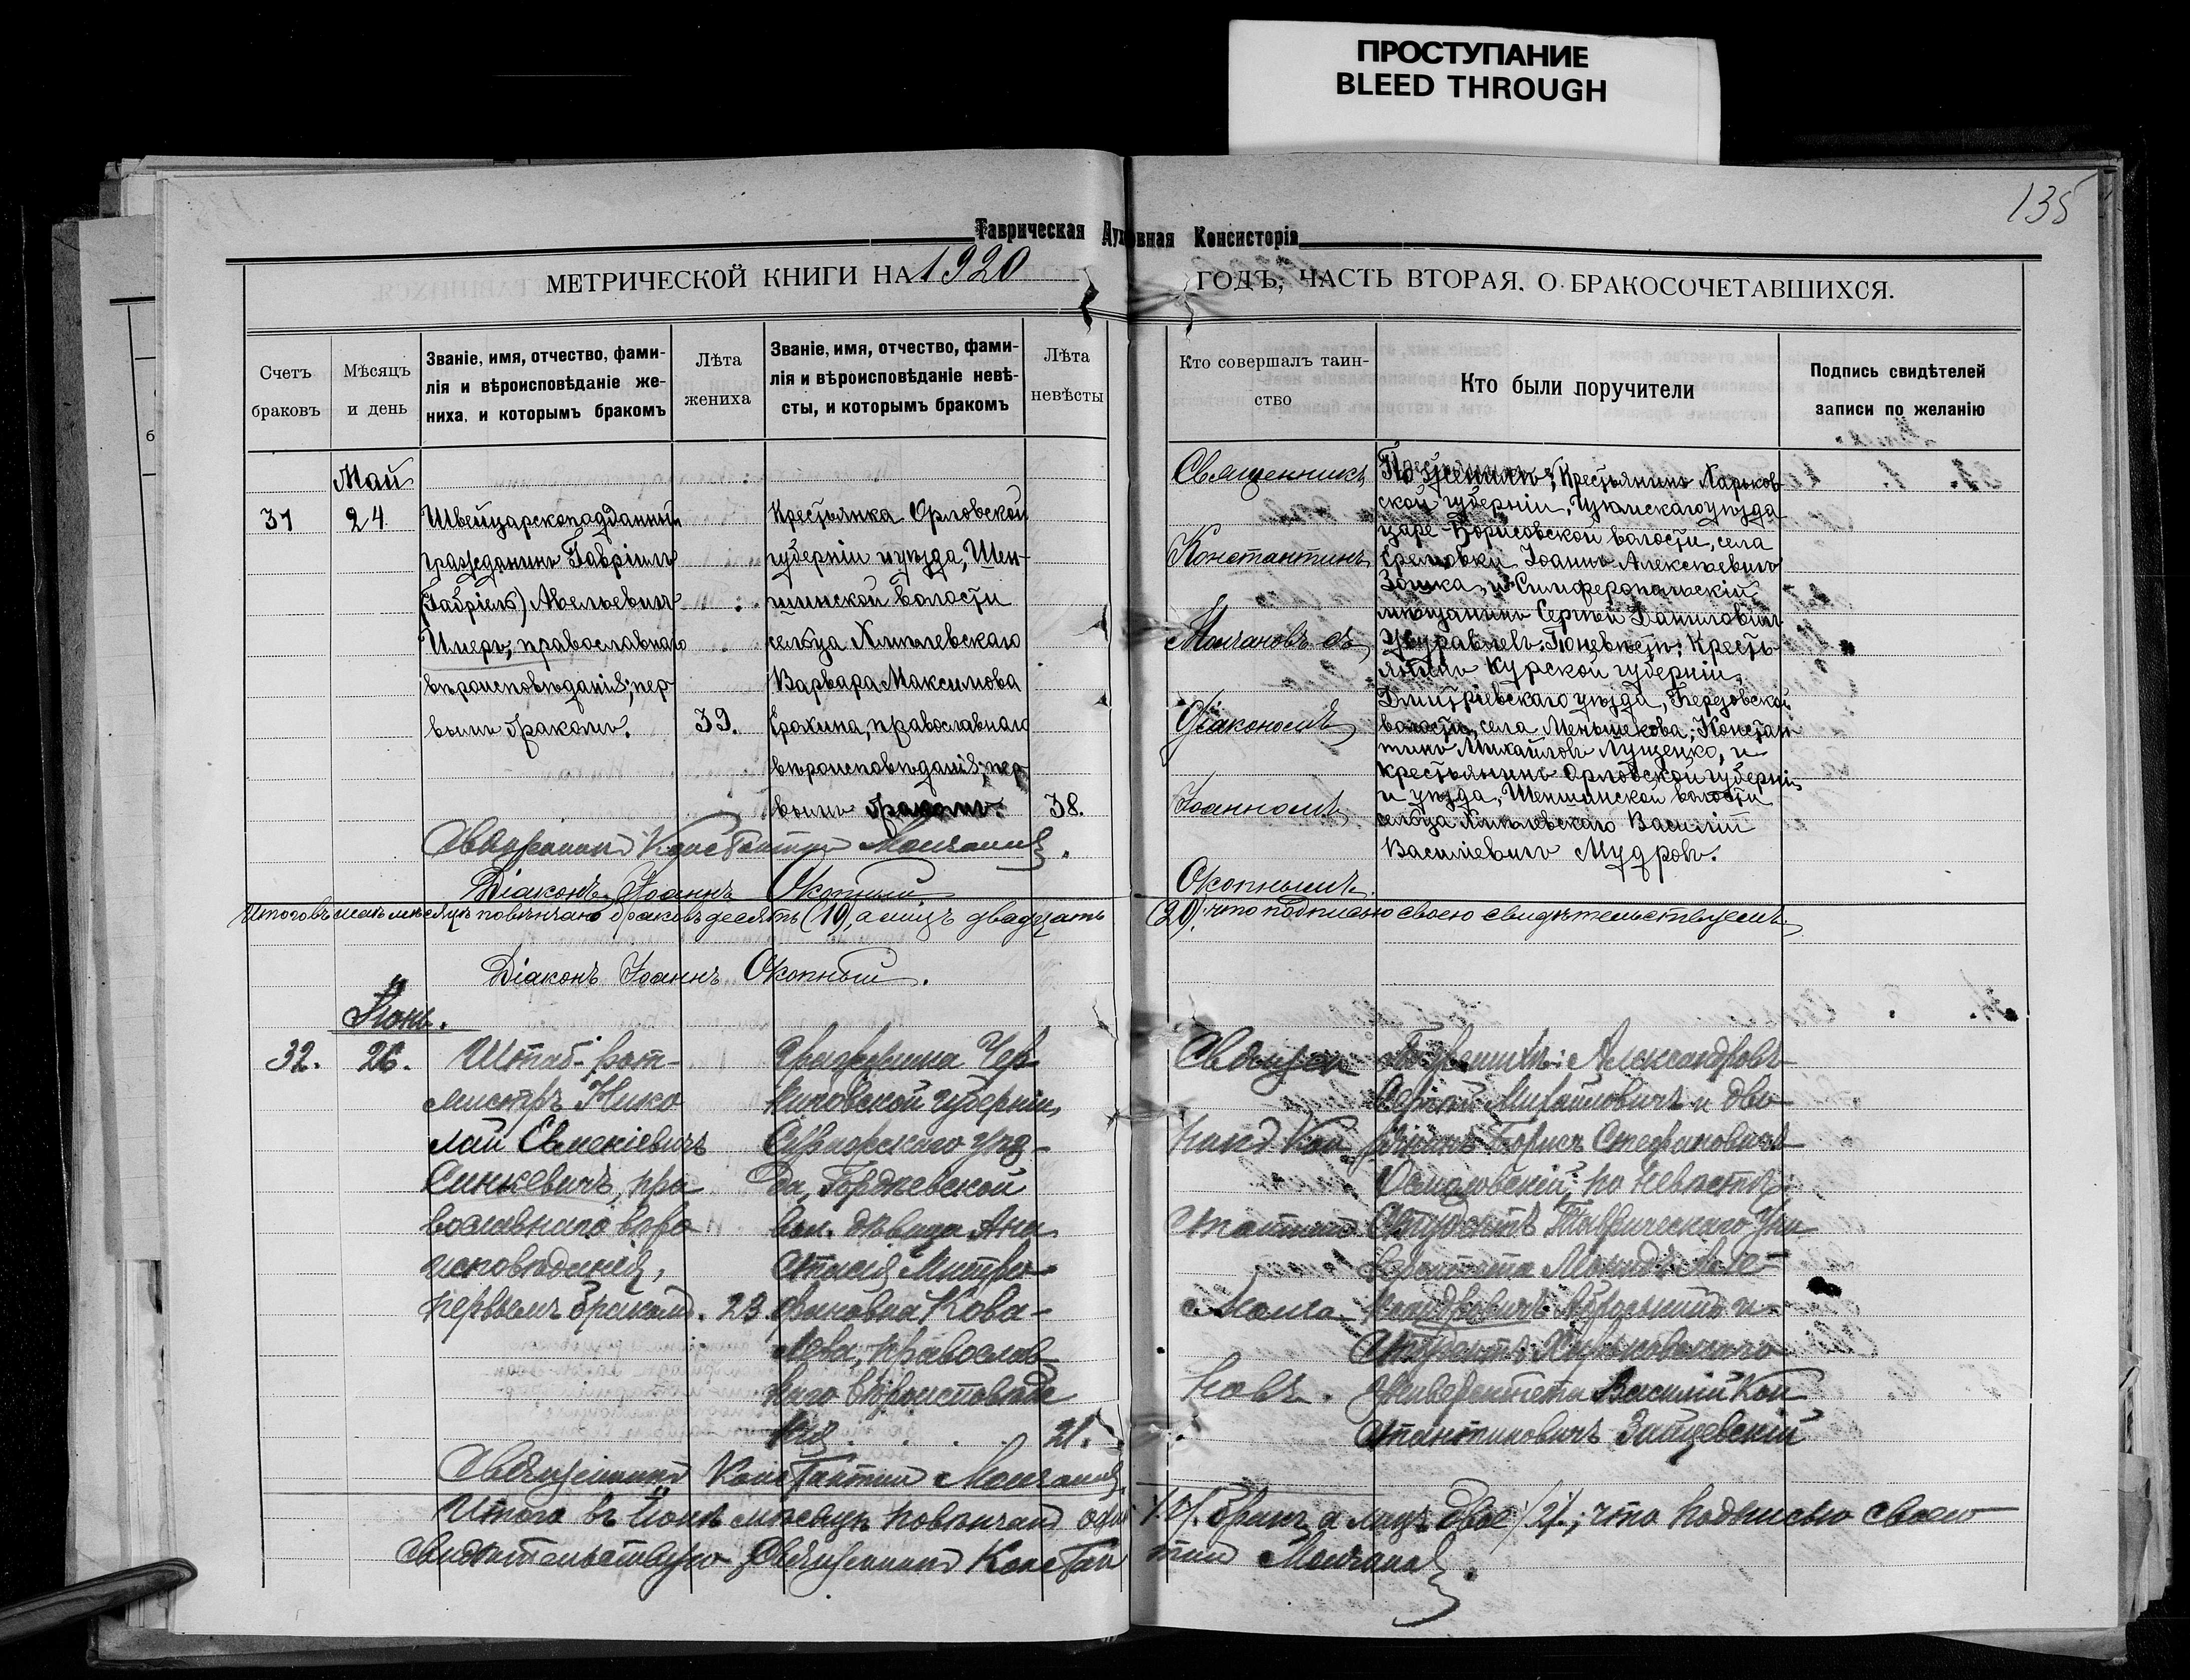 ПРОСТУПАНИЕ
BLEED THROUGH
135
Таврическая Духовная Консисторія
МЕТРИЧЕСКОЙ КНИГИ НА 1920 ГОДЪ, ЧАСТЬ ВТОРАЯ, О БРАКОСОЧЕТАВШИХСЯ.
Счетъ
браковъ
Мѣсяцъ
и день
Званіе, имя, отчество, фами-
лія и вѣроисповѣданіе же-
ниха, и которымъ бракомъ
Лѣта
жениха
Званіе, имя, отчество, фами-
лія и вѣроисповѣданіе невѣ-
сты, и которымъ бракомъ
Лѣта
невѣсты
Кто совершалъ таин-
ство
Кто были поручители
Подпись свидѣтелей
записи по желанію
Май
31
24
Швейцарскоподданный
гражданинъ Гавріилъ
(Габріель) Авельевичъ
Имеръ, православнаго
вѣроисповѣданія; пер
вымъ бракомъ.
39.
Крестьянка Орловской
губерніи и уѣзда, Шен-
шинской волости
сельца Хмѣлевскаго
Варвара Максимова
Ерохина, православнаго
вѣроисповѣданія; пер
вымъ бракомъ.
38.
Священникъ
Константинъ
Молчановъ съ
Діакономъ
Іоанномъ
Окопнымъ.
По женихѣ: Крестьянинъ Харьков
ской губерніи, Изюмскаго уѣзда
Царе-Борисовской волости, села
Іоаннъ Алексѣевичъ
и Симферопольскій
мѣщанинъ Сергѣй Даниловичъ
Журавлевъ. По невѣстѣ: Кресть
янинъ Курской губерніи,
Дмитріевскаго уѣзда, Березовской
волости, села Меньшекова, Констан
тинъ Михайловъ Лущенко, и
Крестьянинъ Орловской губерніи
и уѣзда, Шеншинской волости
сельца Хмѣлевскаго Василій
Василіевичъ Мудровъ.
Священникъ Константинъ Молчановъ.
Діаконъ Іоаннъ Окопный
Итого въ маѣ мѣсяцѣ повѣнчано браковъ десять (10), а лицъ двадцать (20); что подписью своею свидѣтельствуемъ.
Діаконъ Іоаннъ Окопный.
Іюнь.
32.
26.
Штаб-рот-
мистръ Нико
лай
Синкевичъ, пра
вославнаго вѣро
исповѣданія,
первымъ бракомъ.
23.
Гражданка Чер
ниговской губерніи,
Суражскаго уѣз-
да, Гордѣевской
вол. дѣвица Ана
стасія Митро
фановна Кова-
лева, православ
наго вѣроисповѣда
нія
21.
Священ
никъ Кон
стантинъ
Молча
новъ.
По женихѣ: Александровъ
Сергѣй Михайловичъ и дво
рянинъ Борисъ Стефановичъ
по невѣстѣ:
Студентъ Таврическаго Уни
верситета
и
Студентъ Харьковскаго
Университета Василій Кон
стантиновичъ Зайцевскій
Священникъ Константинъ Молчановъ
Итого въ Іюнѣ мѣсяцѣ повѣнчанъ одинъ /1/ бракъ, а лицъ двое /2/; что подписью своею
свидѣтельствую Священникъ Константинъ Молчановъ.